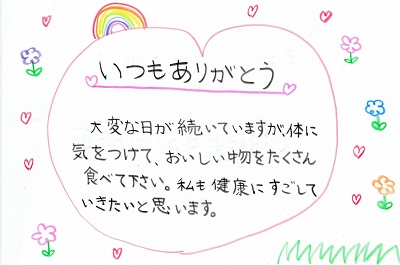 いつもありがとう
大変な日が続いていますが、体に
気をつけて、おいしい物をたくさん
食べて下さい。私も健康にすごして
いきたいと思います。